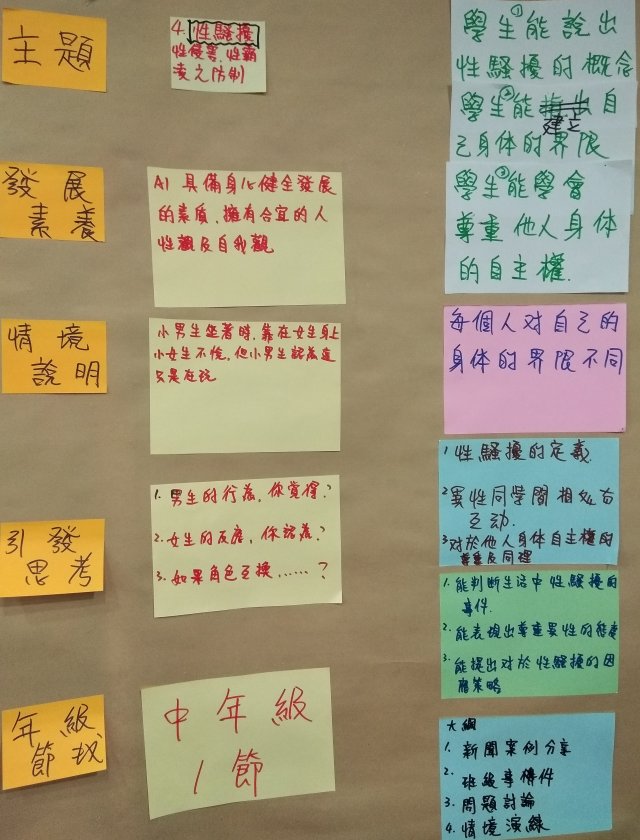 主題
4. 性騷擾
性侵害、性霸
凌之防制
發展
素養
A1 具備身心健全發展
的素質,擁有合宜的人
性觀及自我觀
情境
說明
小男生坐著時,靠在女生身上
小女生不悅,但小男生認為這
只是在玩
引發
思考
1. 男生的行為,你覺得?
2. 女生的反應,你認為?
3. 如果角色互換......?
年級
節數
中年級
1節
①
學生能說出
性騷擾的概念
②
學生能指出自
建立
己身体的界限
③
學生能學會
尊重他人身体
的自主權.
每個人对自己的
身体的界限不同
1 性騷擾的定義.
2 異性同學間相处与
互动.
3 对於他人身体自主權的
尊重及同理
1. 能判断生活中性騷擾的
事件.
2. 能表現出尊重異性的態度
3. 能提出对於性騷擾的因
應策略
大綱
1. 新聞案例分享
2. 班級事件
3. 問題討論
4. 情境演練